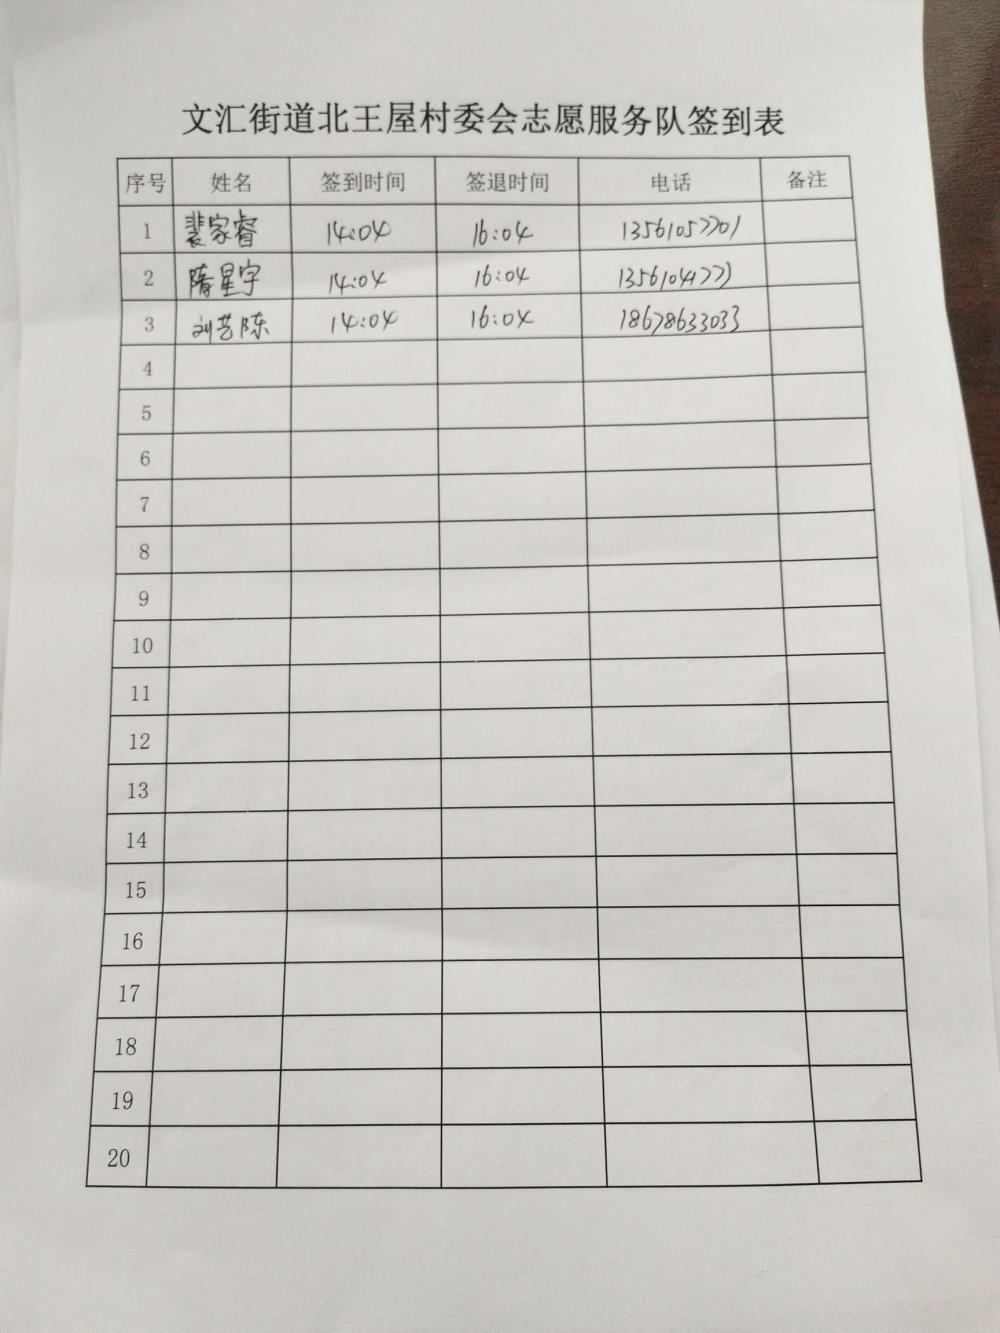 文汇街道北王屋村委会志愿服务队签到表
序号 姓名 签到时间 签退时间 电话 备注
1 裴家睿 14:04 16:04 13561057701
2 隋星宇 14:04 16:04 13561041773
3 刘艺陈 14:04 16:04 18678633033
4
5
6
7
8
9
10
11
12
13
14
15
16
17
18
19
20